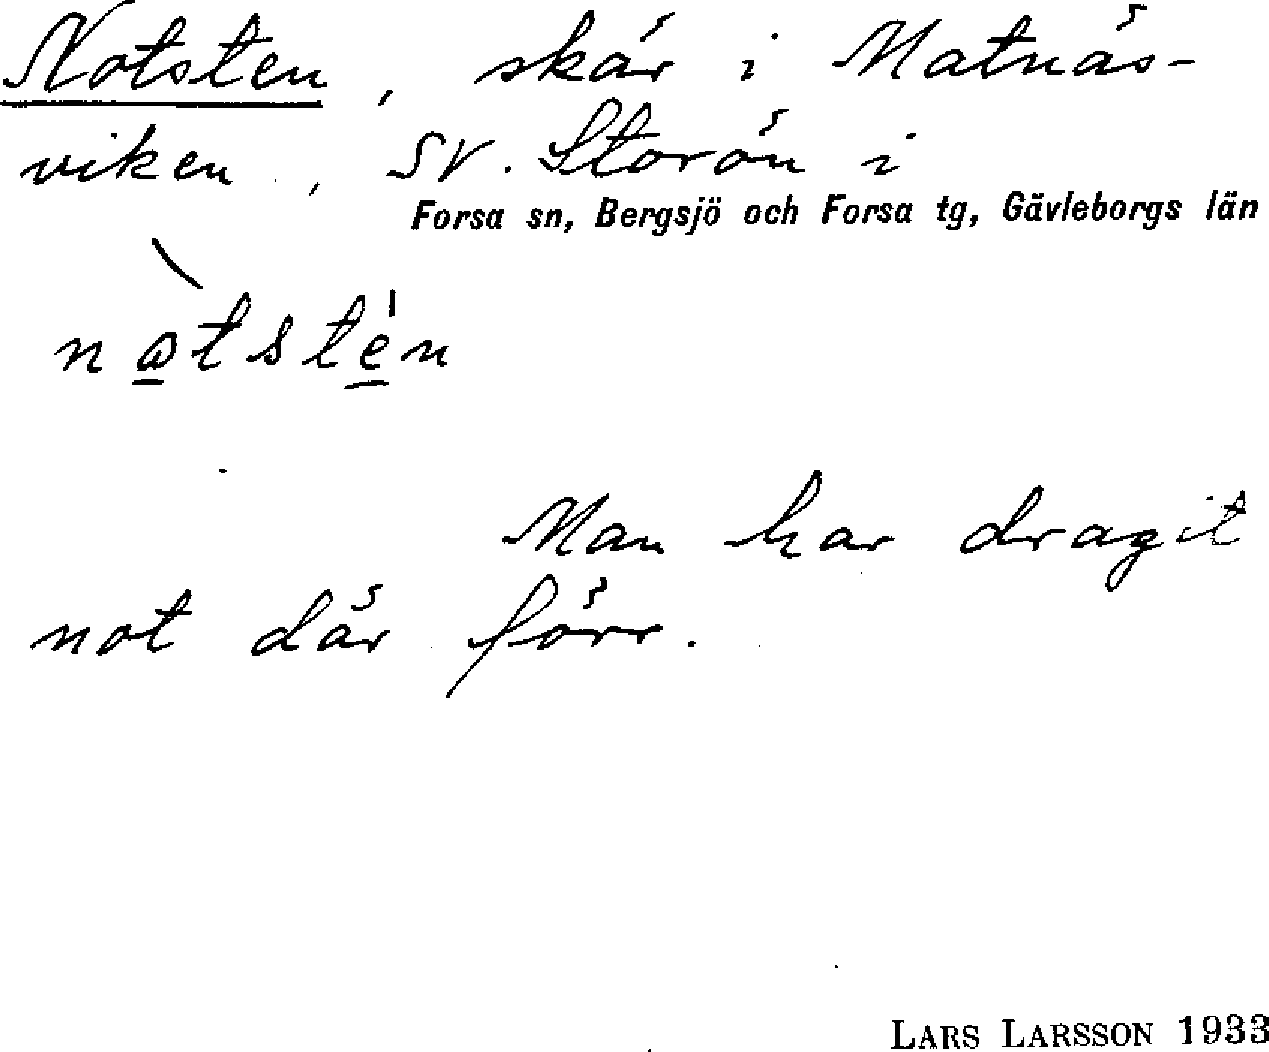 Notsten, skär i Matnäs-
viken, SV. Storön i
Forsa sn, Bergsjö och Forsa tg, Gävleborgs län
nòtstén
Man har dragit
not där förr.
LARS LARSSON 1933